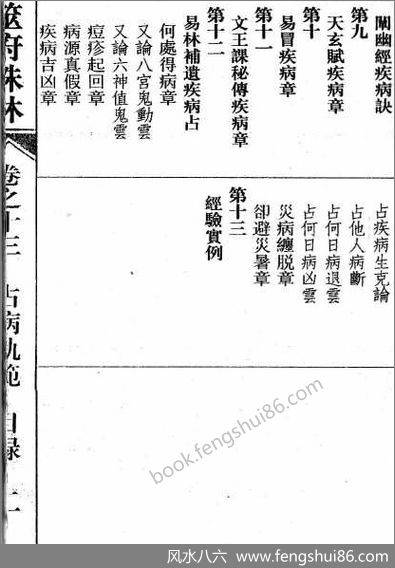 闡幽經疾病訣
第九
天玄賦疾病章
第十
易冒疾病章
第十一
文王課秘傳疾病章
第十二
易林補遺疾病占
何處得病章
又論八宮鬼動雲
又論六神值鬼雲
痘疹起回章
病源真假章
疾病吉凶章
占疾病生克論
占他人病斷
占何日病退雲
占何日病凶雲
災病纏脫章
卻避災暑章
第十三
經驗實例
筮府珠林
卷之十三
占病軌範
目録
二
book.fengshui86.com
风水八六 www.fengshui86.com